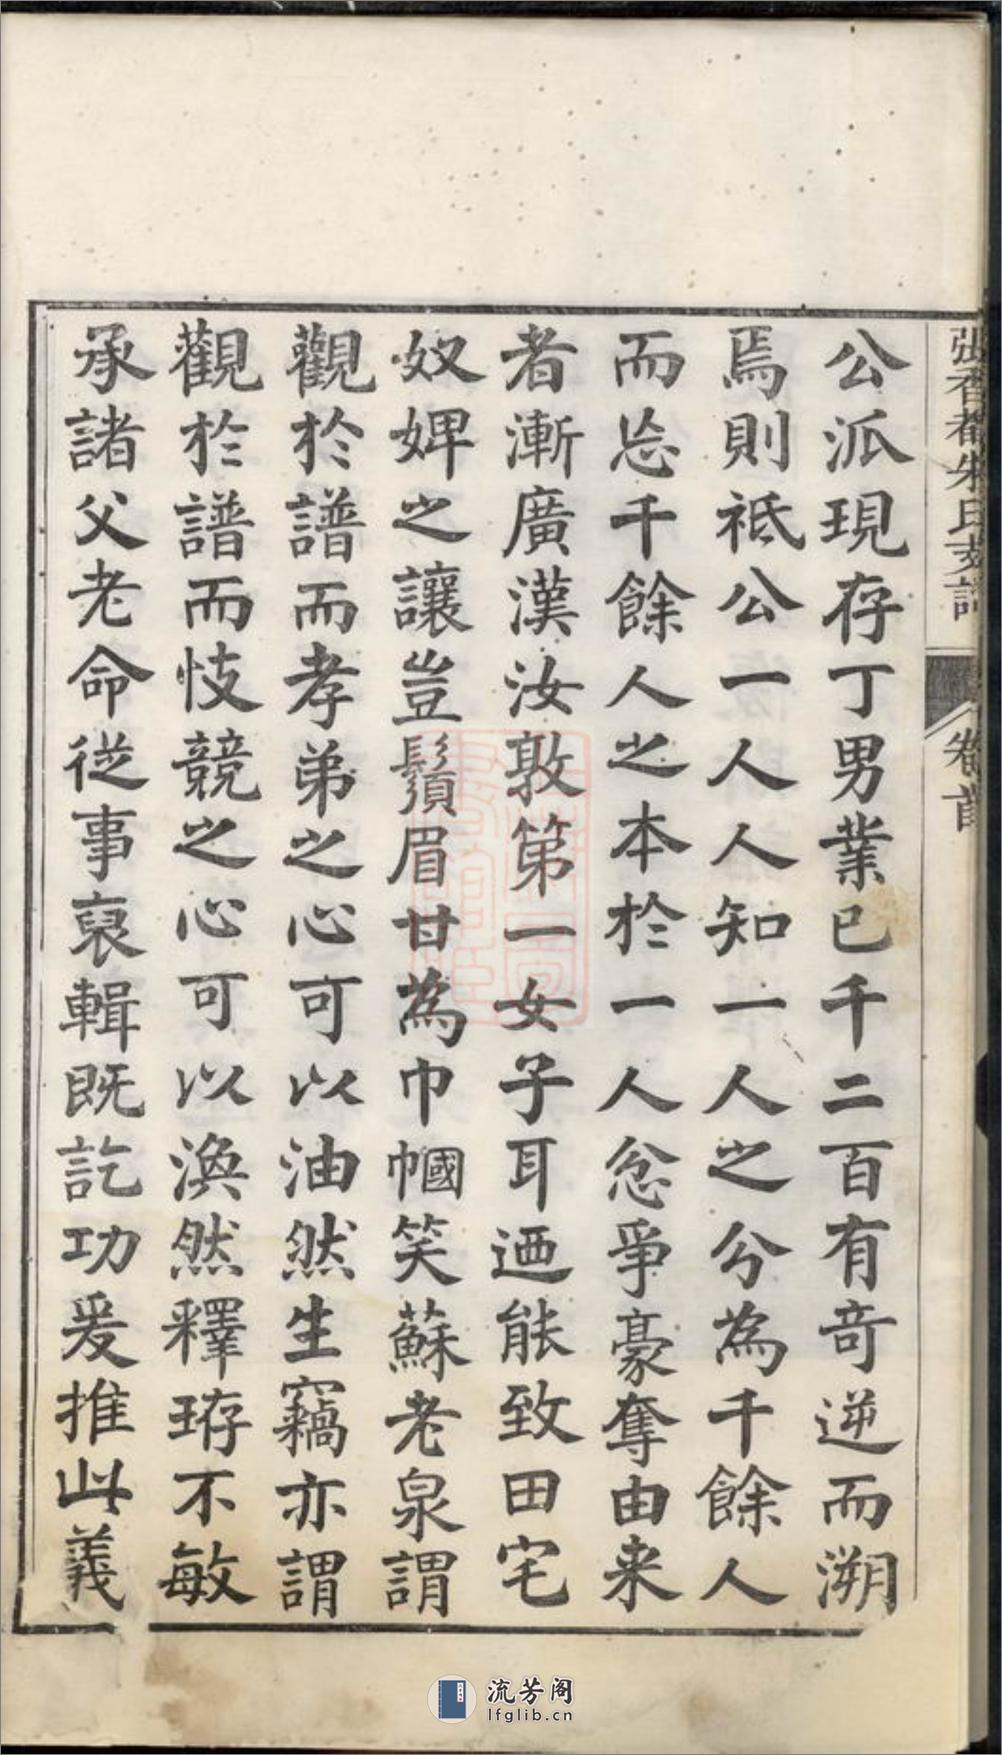 張香都朱氏支譜
卷首
公派現存丁男業已千二百有竒逆而溯
焉則祗公一人人知一人之分為千餘人
而忘千餘人之本於一人忿爭豪奪由来
者漸廣漢汝敦第一女子耳迺能致田宅
奴婢之讓豈鬚眉甘為巾幗笑蘇老泉謂
觀於譜而孝弟之心可以油然生竊亦謂
觀於譜而忮競之心可以渙然釋珔不敏
承諸父老命從事裒輯既訖功爰推此義
流芳阁
lfglib.cn